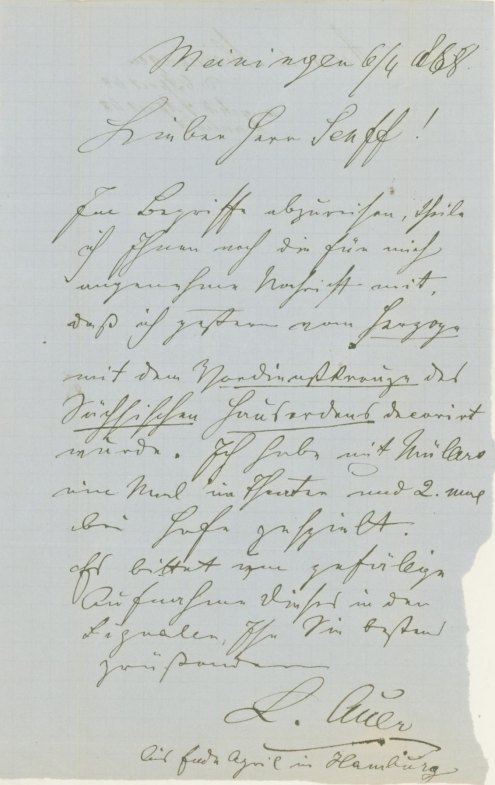 Meiningen 6/4 868.
Lieber Herr Senff!
Im Begriffe abzureisen, theile
ich Ihnen noch die für mich
angenehme Nachricht mit,
daß ich gestern vom Herzoge
mit dem Verdienstkreuze des
Sächsischen Hausordens decorirt
wurde. Ich habe mit Müllers
ein Mal im Theater und 2. mal
bei Hofe gespielt.
Es bittet um gefällige
Aufnahme dieses in den
Signalen, Ihr Sie bestens
grüßender
L. Auer
bis Ende April in Hamburg